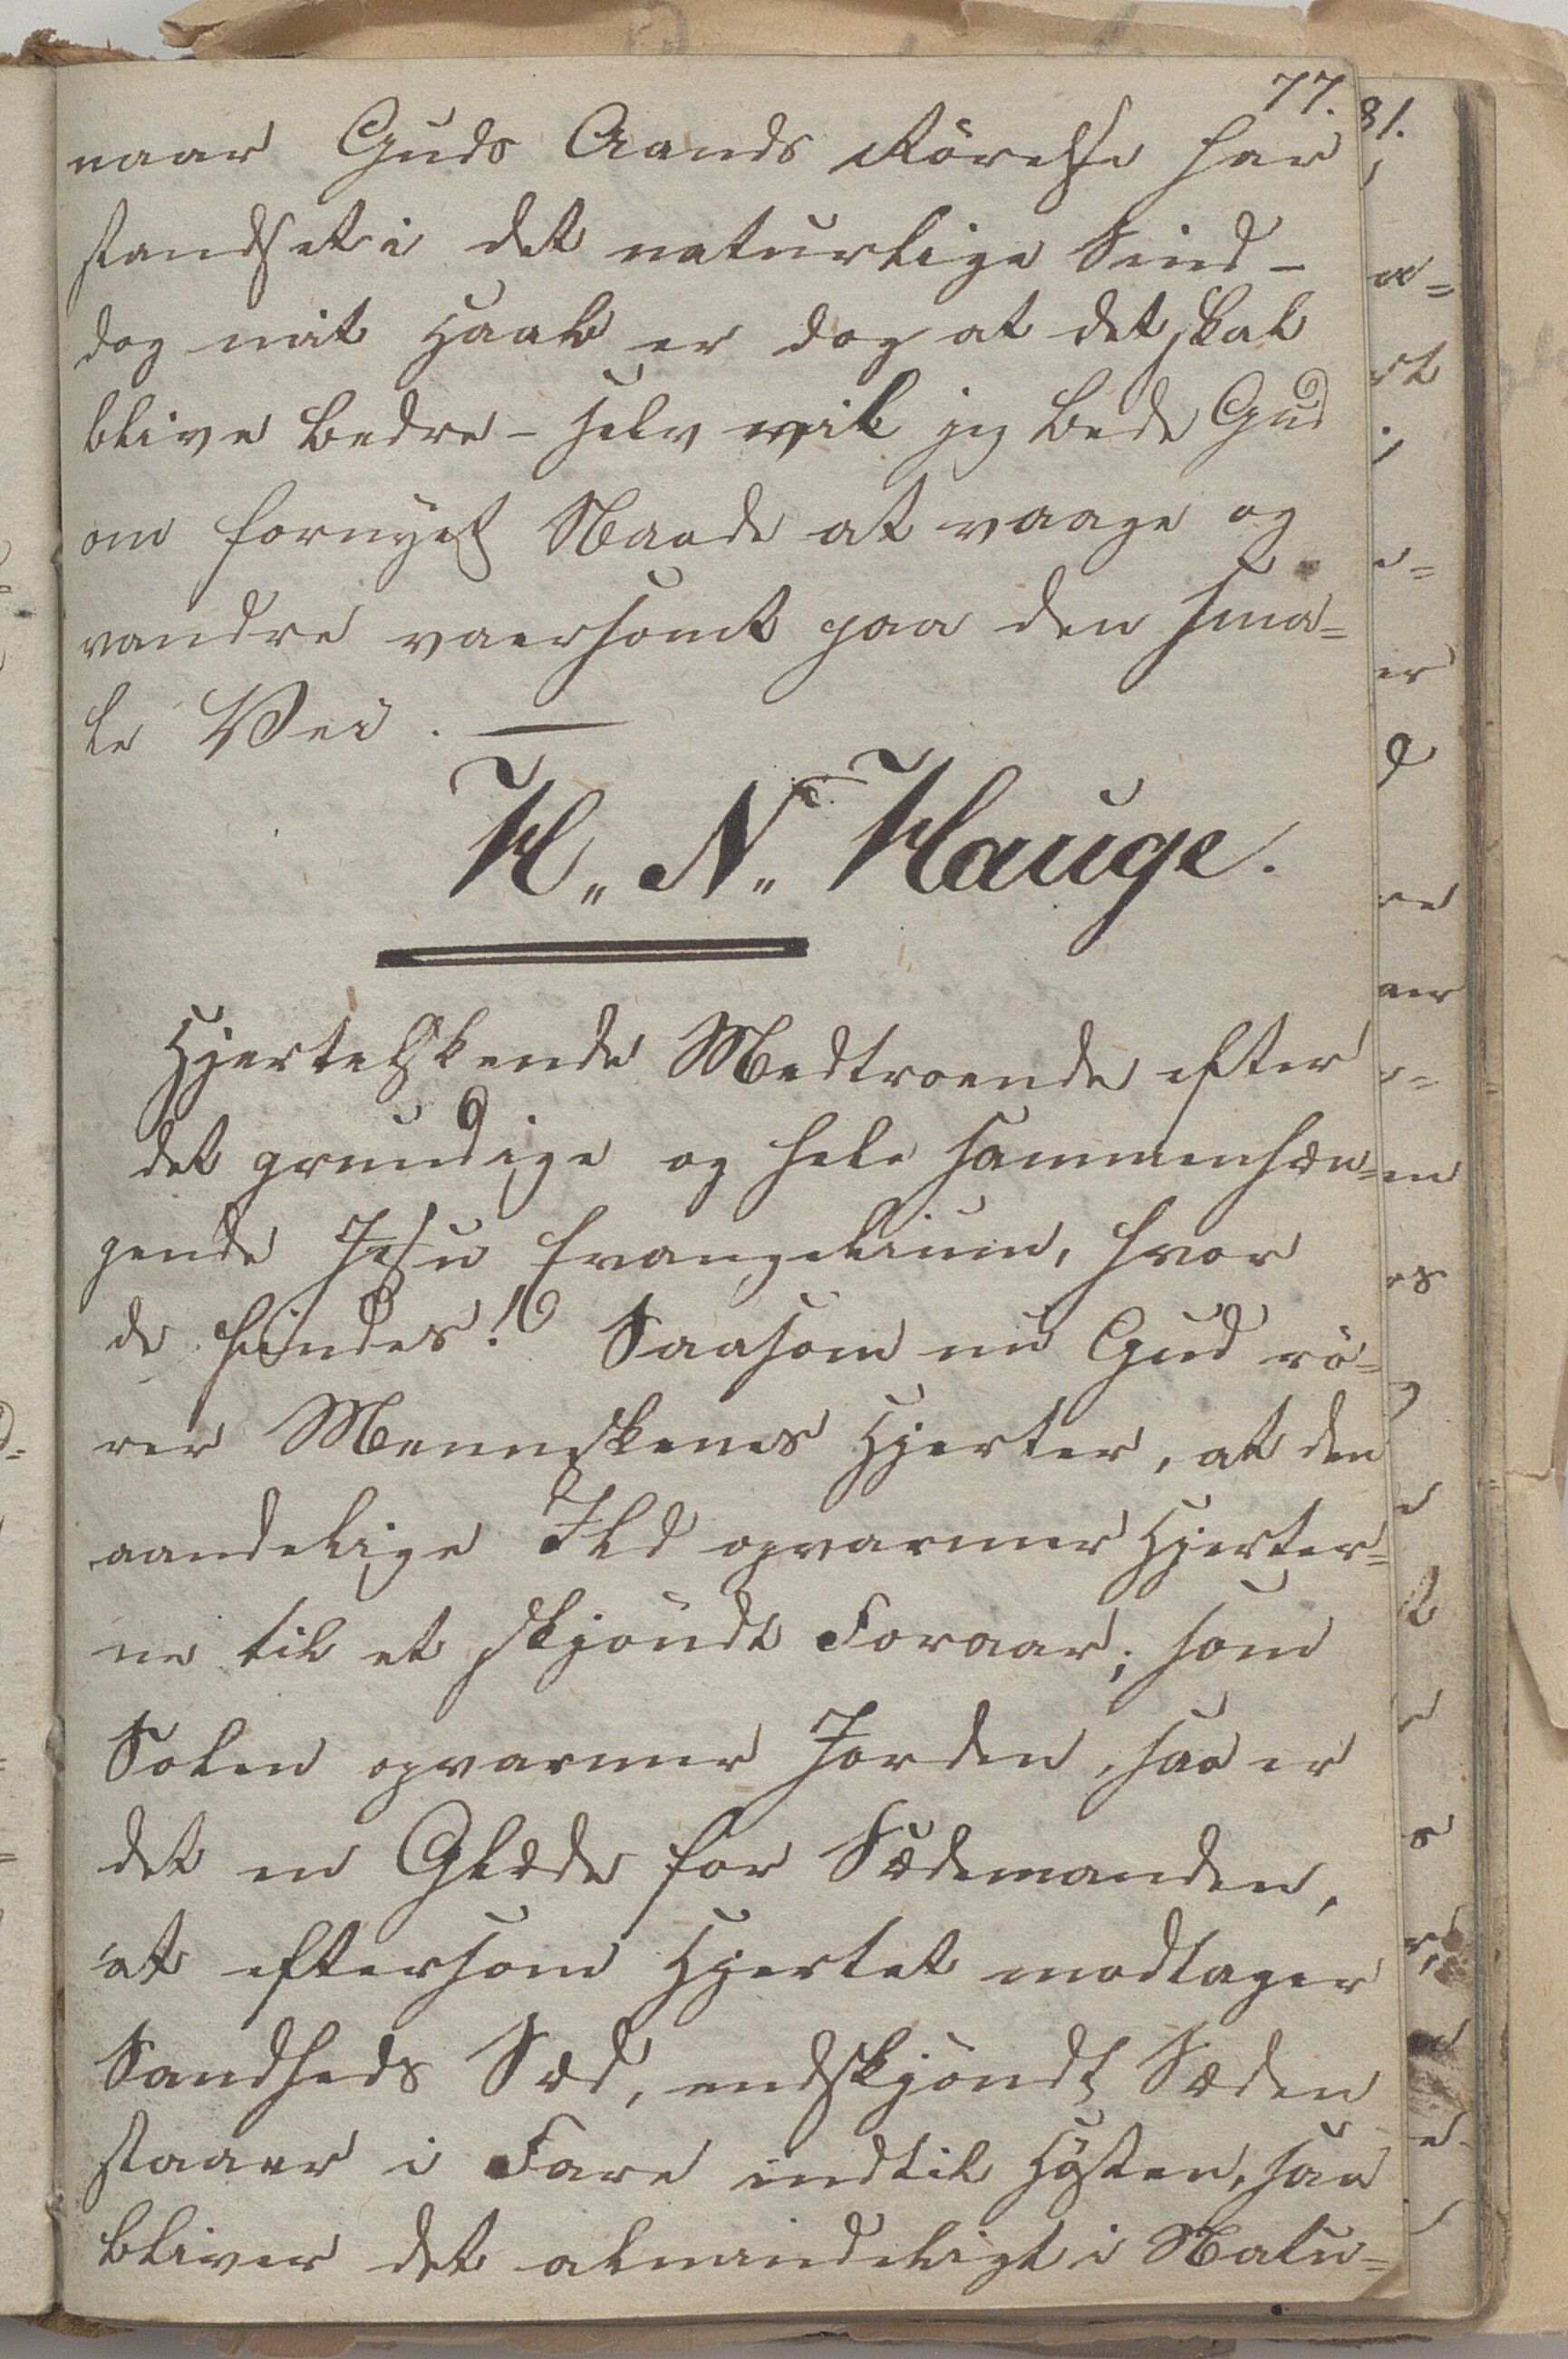 77.
naar Guds Aands Rörelse har
standset i det naturlige Sind -
dog mit Haab er dog at det skal
blive bedre - selv vil jeg bede Gud
om fornyet Naade at vaage og
vandre varsomt paa den sma=
le Vei. —
H„ N„ Hauge.
Hjertelskende Medtroende efter
det grundige og hele sammenhæn=
gende Jesu Evangelium, hvor
de findes! Saasom nu Gud rö=
rer Menneskenes Hjerter, at den
aandelige Ild opvarmer Hjerter=
ne til et skjöndt Foraar; som
Solen opvarmer Jorden, saa er
det en Glæde for Sædemanden,
at eftersom Hjertet modtager
Sandheds Sæd, endskjöndt Sæden
staaer i Fare indtil Hösten, saa
bliver det almindeligt i Natu=
81.